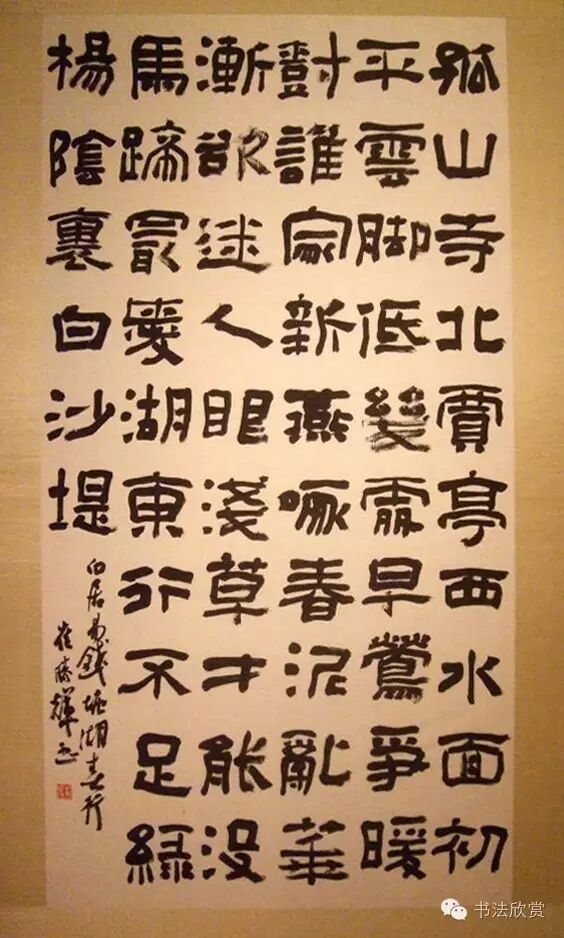 孤山寺北賈亭西水面初
平雲脚低幾處早鶯爭暖
樹誰家新燕啄春泥亂華
漸欲迷人眼淺草才能没
馬蹄最愛湖東行不足綠
楊陰裏白沙堤
白居易錢塘湖春行
崔勝輝书
书法欣赏